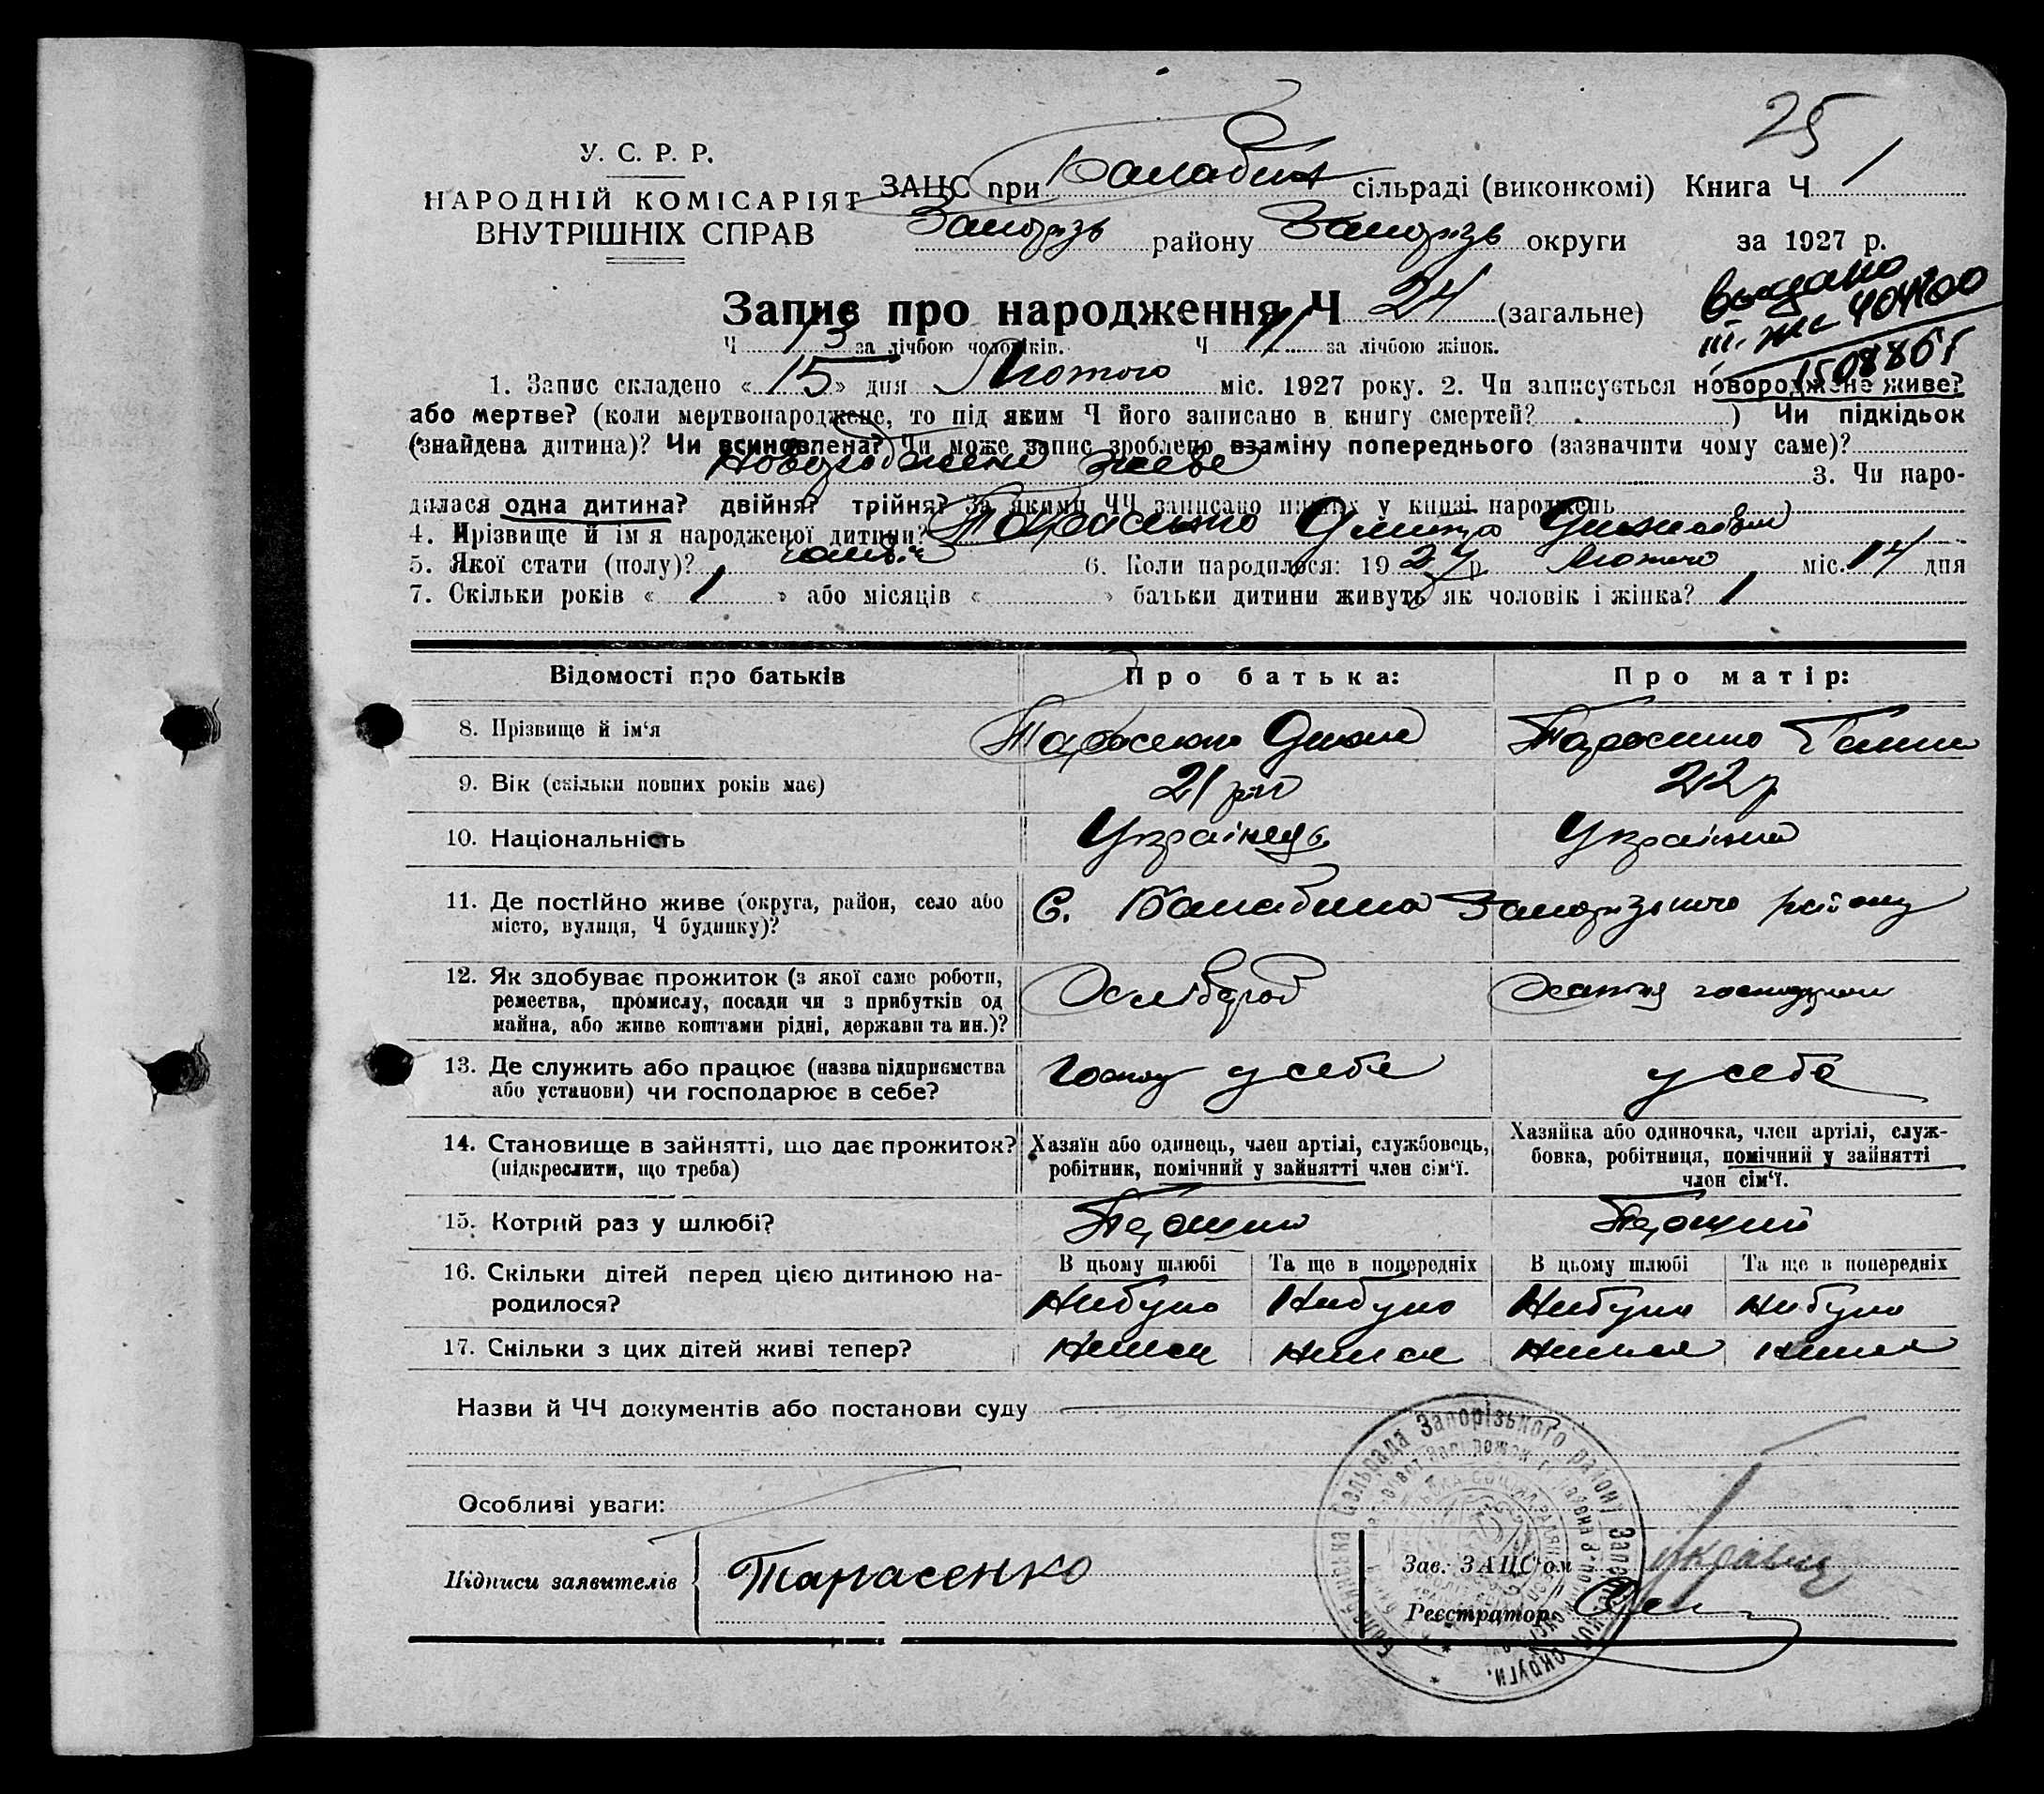 25
У. С. Р. Р.
НАРОДНІЙ КОМІСАРІЯТ
ВНУТРІШНІХ СПРАВ
ЗАЦС при Балабин сільраді (виконкомі) Книга Ч 1
Запорізь району Запорізь округи за 1927 р.
Запис про народження Ч 24 (загальне)
Ч 13 за лічбою чоловіків. Ч 11 за лічбою жінок.
выдано
404200
1508865
1. Запис складено « 15 » дня Лютого міс. 1927 року. 2. Чи записується новороджене живе?
або мертве? (коли мертвонароджене, то під яким Ч його записано в книгу смертей? ) Чи підкідьок
(знайдена дитина)? Чи всиновлена? Чи може запис зроблено взаміну попереднього (зазначити чому саме)?
Новороджене живе 3. Чи наро-
дилася одна дитина? двійня? трійня? За якими ЧЧ записано инших у книзі народжень
4. Прізвище й ім'я народженої дитини? Тарасенко Дмитро
5. Якої стати (полу)? 6. Коли народилося: 1927 р. Лютого міс. 14 дня
7. Скільки років « 1 » або місяців « » батьки дитини живуть як чоловік і жінка? 1
Відомості про батьків Про батька: Про матір:
8. Прізвище й ім'я Тарасенко Тарасенко Ганна
9. Вік (скільки повних років має) 21 рік 22 р
10. Національність Українець Українка
11. Де постійно живе (округа, район, село або С. Балабина Запорізького району
місто, вулиця, Ч будинку)?
12. Як здобуває прожиток (з якої саме роботи, Хлібороб Хатня господарка
ремества, промислу, посади чи з прибутків од
майна, або живе коштами рідні, держави та ин.)?
13. Де служить або працює (назва підприємства Господ у себе у себе
або установи) чи господарює в себе?
14. Становище в зайнятті, що дає прожиток? Хазяїн або одинець, член артілі, службовець, Хазяйка або одиночка, член артілі, служ-
(підкреслити, що треба) робітник, помічний у зайнятті член сім'ї. бовка, робітниця, помічний у зайнятті
член сім'ї.
15. Котрий раз у шлюбі? Перший Перший
16. Скільки дітей перед цією дитиною на- В цьому шлюбі Та ще в попередніх В цьому шлюбі Та ще в попередніх
родилося? Небуло Небуло Небуло Небуло
17. Скільки з цих дітей живі тепер? Немає Немає Немає Немає
Назви й ЧЧ документів або постанови суду
Особливі уваги:
Підписи заявителів Тарасенко Зав. ЗАЦС'ом
Реєстратор
сільрада Запорізького району Запорізької округи.